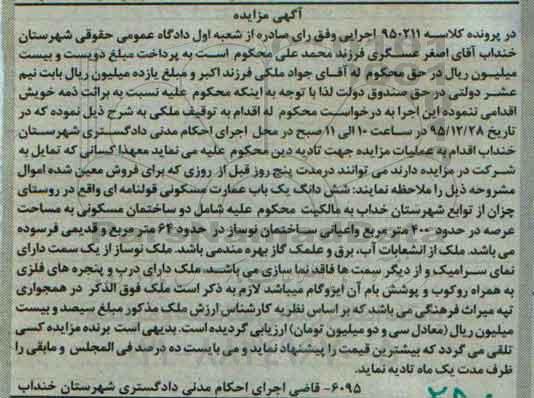 آگهی مزایده
در پرونده کلاسه ۹۵۰۲۱۱ اجرایی وفق رای صادره از شعبه اول دادگاه عمومی حقوقی شهرستان
خنداب آقای اصغر عسگری فرزند محمد علی محکوم است به پرداخت مبلغ دویست و بیست
میلیون ریال در حق محکوم له آقای جواد ملکی فرزند اکبر و مبلغ یازده میلیون ریال بابت نیم
عشر دولتی در حق صندوق دولت لذا با توجه به اینکه محکوم علیه نسبت به برائت ذمه خویش
اقدامی ننموده این اجرا به درخواست محکوم له اقدام به توقیف ملکی به شرح ذیل نموده که در
تاریخ ۹۵/۱۲/۲۸ در ساعت ۱۰ الی ۱۱ صبح در محل اجرای احکام مدنی دادگستری شهرستان
خنداب اقدام به عملیات مزایده جهت تادیه دین محکوم علیه می نماید معهذا کسانی که تمایل به
شرکت در مزایده دارند می توانند درمدت پنج روز قبل از روزی که برای فروش معین شده اموال
مشروحه ذیل را ملاحظه نمایند: شش دانگ یک باب عمارت مسکونی قولنامه ای واقع در روستای
چزان از توابع شهرستان خنداب به مالکیت محکوم علیه شامل دو ساختمان مسکونی به مساحت
عرصه در حدود ۴۰۰ متر مربع واعیانی ساختمان نوساز در حدود ۶۴ متر مربع و قدیمی فرسوده
می باشد. ملک از انشعابات آب، برق و علمک گاز بهره مندمی باشد. ملک نوساز از یک سمت دارای
نمای سرامیک و از دیگر سمت ها فاقد نما سازی می باشد. ملک دارای درب و پنجره های فلزی
به همراه روکوب و پوشش بام آن ایزوگام میباشد لازم به ذکر است ملک فوق الذکر در همجواری
تپه میراث فرهنگی می باشد که بر اساس نظریه کارشناس ارزش ملک مذکور مبلغ سیصد و بیست
میلیون ریال (معادل سی و دو میلیون تومان) ارزیابی گردیده است. بدیهی است برنده مزایده کسی
تلقی می گردد که بیشترین قیمت را پیشنهاد نماید و می بایست ده درصد فی المجلس و مابقی را
ظرف مدت یک ماه تادیه نماید.
۶۰۹۵- قاضی اجرای احکام مدنی دادگستری شهرستان خنداب